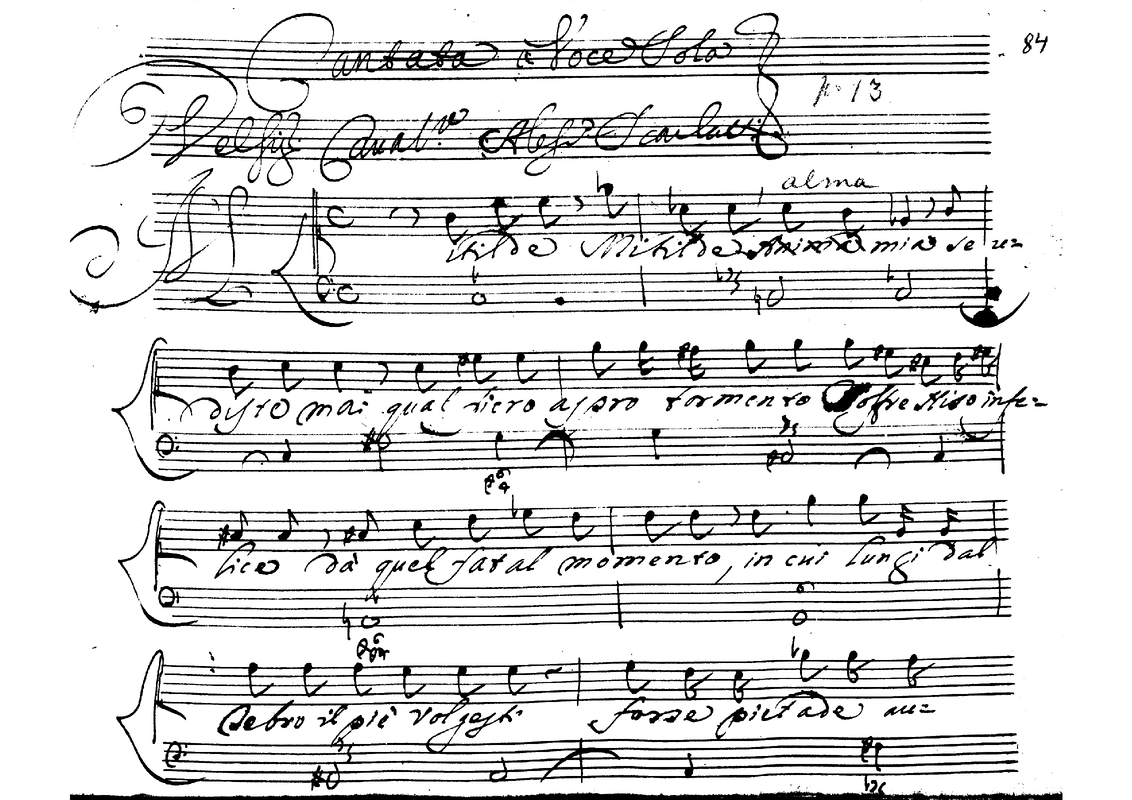 Cantata à Voce Sola
84
N° 13
Del Sig.r Caval.re Aless.o Scarlatti
alma
Mitilde Mitilde Anima mia se u=
diste mai qual fiero aspro tormento Soffre Niso infe=
lice da quel fatal momento, in cui lungi dal
Tebro il piè volgesti forse pietade au=